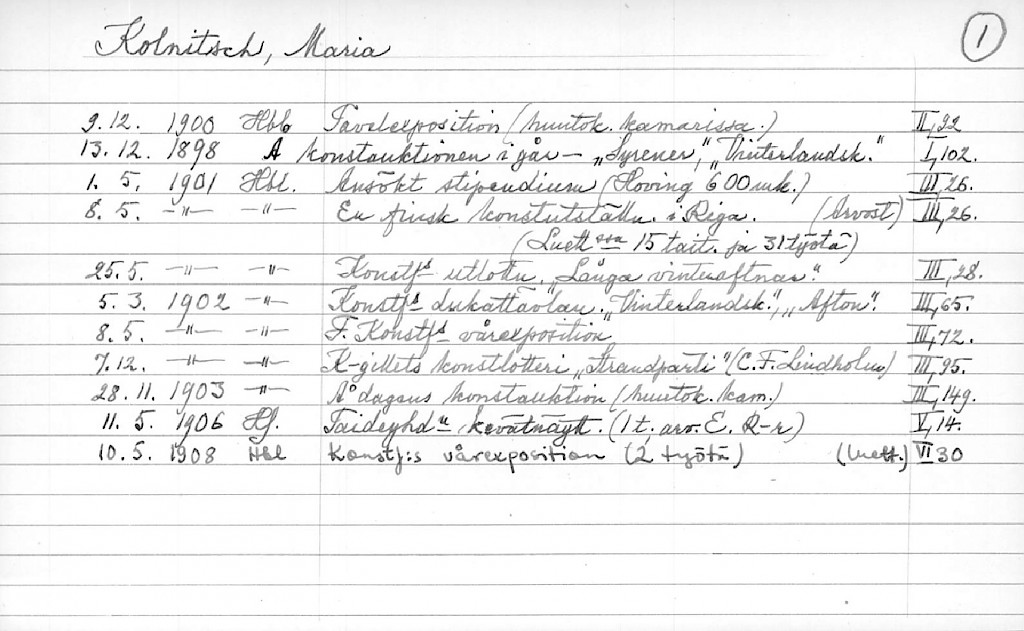 Kolnitsch, Maria 1
9.12. 1900 Hbl. Tavelexposition (huutok. kamarissa.) II,92
13.12. 1898 A konstauktionen i går – „Syrener", „Vinterlandsk." I,102.
1. 5. 1901 Hbl. Ansökt stipendium (Hoving 600 mk.) III,26.
8. 5. –"– –"– En finsk konstutställn. i Riga. (Arvost) III,26.
(Luett ssa 15 tait. ja 31 työtä)
25. 5. –"– –"– Konstfs utlottn. „Långa vinteraftnar". III,28.
5. 3. 1902 –"– Konstfs dukattävlan. „Vinterlandsk.", „Afton". III,65.
8. 5. –"– –"– F. Konstfs vårexposition III,72.
7.12. –"– –"– K-gillets konstlotteri „Strandparti" (C.F. Lindholm) III,95.
28. 11. 1903 –"– Å dagens konstauktion (huutok. kam.) III,149.
11. 5. 1906 Hf. Taideyhdn kevätnäytt. (1 t. arv. E. R-r) V,14.
10. 5. 1908 Hbl Konstf:s vårexposition (2 työtä) (luett.) VI 30